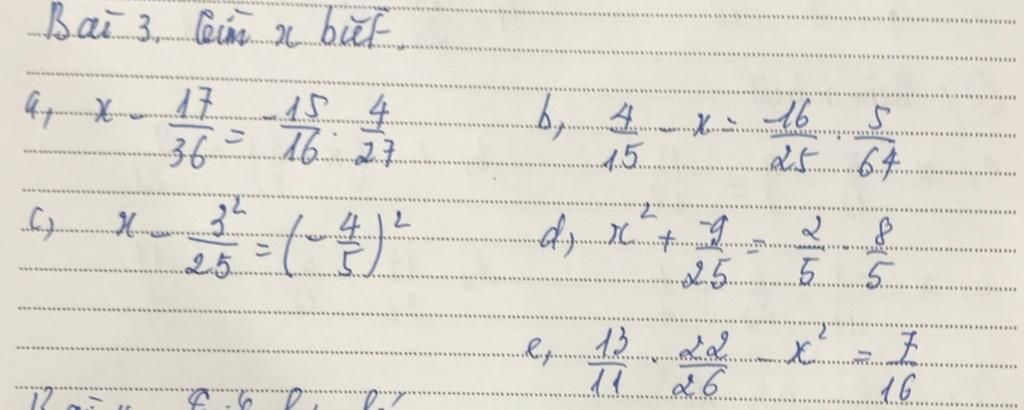 Bài 3. Tìm x biết.
a, x - 17/36 = -15/16 . 4/27 b, 4/15 - x = 16/25 . 5/64
c, x - 3²/25 = (-4/5)² d, x² + -9/25 = 2/5 . 8/5
e, 13/11 . 22/26 - x² = 7/16